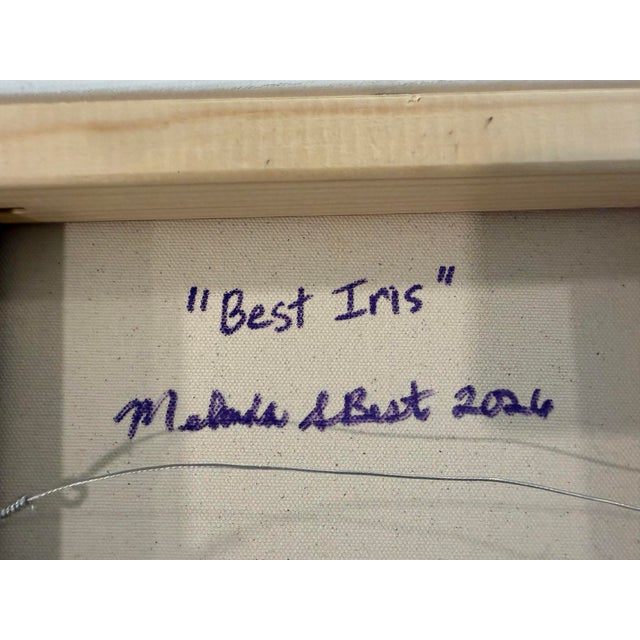 "Best Iris"
Melinda S Best 2026